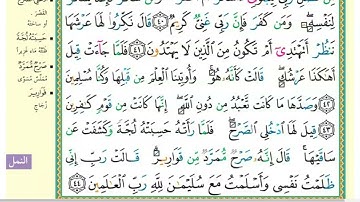 لِنَفْسِهِۦ ۖ وَمَن كَفَرَ فَإِنَّ رَبِّى غَنِىٌّ كَرِيمٌ ﴿٤٠﴾ قَالَ نَكِّرُوا۟ لَهَا عَرْشَهَا
نَنظُرْ أَتَهْتَدِىٓ أَمْ تَكُونُ مِنَ ٱلَّذِينَ لَا يَهْتَدُونَ ﴿٤١﴾ فَلَمَّا جَآءَتْ قِيلَ
أَهَٰكَذَا عَرْشُكِ ۖ قَالَتْ كَأَنَّهُۥ هُوَ ۚ وَأُوتِينَا ٱلْعِلْمَ مِن قَبْلِهَا وَكُنَّا مُسْلِمِينَ
﴿٤٢﴾ وَصَدَّهَا مَا كَانَت تَّعْبُدُ مِن دُونِ ٱللَّهِ ۖ إِنَّهَا كَانَتْ مِن قَوْمٍ كَٰفِرِينَ
﴿٤٣﴾ قِيلَ لَهَا ٱدْخُلِى ٱلصَّرْحَ ۖ فَلَمَّا رَأَتْهُ حَسِبَتْهُ لُجَّةً وَكَشَفَتْ عَن
سَاقَيْهَا ۚ قَالَ إِنَّهُۥ صَرْحٌ مُّمَرَّدٌ مِّن قَوَارِيرَ ۗ قَالَتْ رَبِّ إِنِّى
ظَلَمْتُ نَفْسِى وَأَسْلَمْتُ مَعَ سُلَيْمَٰنَ لِلَّهِ رَبِّ ٱلْعَٰلَمِينَ ﴿٤٤﴾
حَسِبَتْهُ لُجَّةً
صَرْحٌ مُّمَرَّدٌ
قَوَارِيرَ
زجاج
النمل